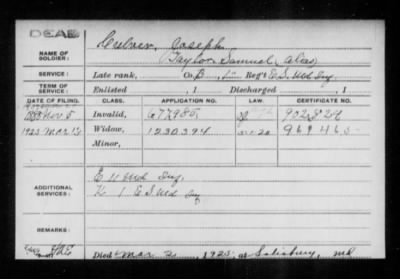 DEAD
NAME OF SOLDIER: Culver, Joseph
Taylor, Samuel (alias)
SERVICE: Late rank, Co. B, 1 Reg't E.S. Md Inf.
TERM OF SERVICE: Enlisted , 1 Discharged , 1
DATE OF FILING. CLASS. APPLICATION NO. LAW. CERTIFICATE NO.
1888 Nov 5 Invalid, 677985 902,824
1925 Mar 16 Widow, 1230394
Minor,
ADDITIONAL SERVICES: E 11 Md Inf.
K 1 E S Md Inf
REMARKS:
Died Mar 2, 1925, at Salisbury, Md